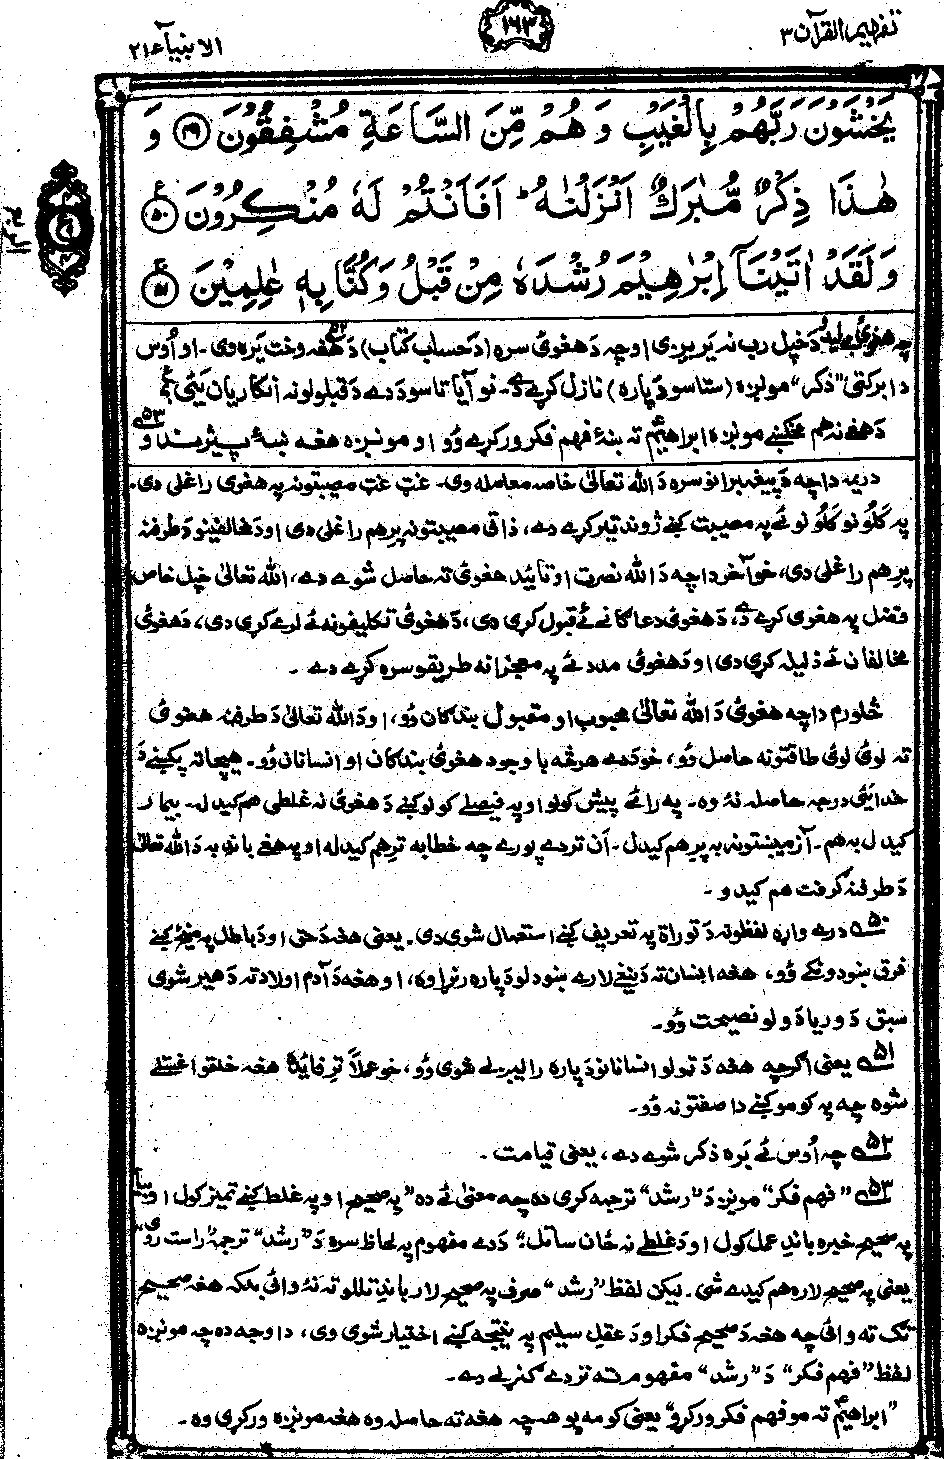 تفهیم القرآن ۳
۱۶۳
الانبیآء ۲۱
یَخْشَوْنَ رَبَّهُمْ بِالْغَیْبِ وَ هُمْ مِّنَ السَّاعَةِ مُشْفِقُوْنَ ﴿۴۹﴾ وَ
هٰذَا ذِكْرٌ مُّبٰرَكٌ اَنْزَلْنٰهُ ؕ اَفَاَنْتُمْ لَهٗ مُنْكِرُوْنَ ﴿۵۰﴾ ع
وَ لَقَدْ اٰتَیْنَاۤ اِبْرٰهِیْمَ رُشْدَهٗ مِنْ قَبْلُ وَ كُنَّا بِهٖ عٰلِمِیْنَ ﴿۵۱﴾ ج
چه د خپل رب نه یریږی او چه د هغوی سره (د حساب کتاب) د هغه۵۲ وخت یره وی۔ او اُوس
دا برکتی "ذکر" مونږه (ستاسو دپاره) نازل کړے دے۔ نو آیا تاسو د دے د قبلولو نه انکاریان یئی؟
د هغے نه هم مخکښے مونږه ابراهیمؑ ته ښهٔ فهم فکر ورکړے وُو او مونږه هغه ښهٔ پیژندو۵۳
دریم دا چه د پیغمبرانو سره د الله تعالیٰ خاصه معامله وی۔ غټ غټ مصیبتونه په هغوی راغلی دی۔
په کلُونو کلُونو ئے په مصیبت کښے ژوند تیر کړے دے، ذاتی مصیبتونه پرے هم راغلی دی او د مخالفینو د طرفه
پرے هم راغلی دی، خو آخر دا چه د الله نصرت او تائید هغوی ته حاصل شوے دے، الله تعالیٰ خپل خاص
فضل په هغوی کړے دے، د هغوی دعاګانے ئے قبول کړی دی، د هغوی تکلیفونه ئے لرے کړی دی، د هغوی
مخالفان ئے ذلیله کړی دی او د هغوی مدد ئے په معجزانه طریقو سره کړے دے ۔
څلورم دا چه هغوی د الله تعالیٰ محبوب او مقبول بندګان وُو، او د الله تعالیٰ د طرفه هغوی
ته لوئی لوئی طاقتونه حاصل وُو، خو د دے هر څه باوجود هغوی بندګان او انسانان وُو۔ هیچا ته پکښے د
خدایئ درجه حاصله نهٔ وه۔ په رائے پیش کولو او په فیصلے کولو کښے د هغوی نه غلطی هم کیدله۔ بیمار
کیدل به هم۔ آزمیښتونه به پرے هم کیدل۔ آن تر دے پورے چه خطا به ترے هم کیدله او په هغے باندے به د الله تعالیٰ
د طرفه ګرفت هم کیدو ۔
۵۰ درے واړه لفظونه د توراة په تعریف کښے استعمال شوی دی۔ یعنی هغه د حق او د باطل په مینځ کښے
فرق ښودونکے وُو، هغه انسان ته د نیغے لارے ښودلو دپاره رنړا وه، او هغه د آدم اولاد ته د هیر شوی
سبق د وریادولو نصیحت وُو۔
۵۱ یعنی اګرچه هغه د ټولو انسانانو دپاره رالیږلے شوی وُو، خو عملاً ترے فائیده هغه خلقو اغستلے
شوه چه په کومو کښے دا صفتونه وُو۔
۵۲ چه اُوس ئے بَره ذکر شوے دے، یعنی قیامت ۔
۵۳ "فهم فکر" مونږه د "رشد" ترجمه کړی ده چه معنیٰ ئے ده "په صحیح او په غلط کښے تمیز کول او بیا
په صحیح خبره باندے عمل کول او د غلطے نه ځان ساتل"۔ د دے مفهوم په لحاظ سره د "رشد" ترجمه "راست روی"
یعنی په صحیح لاره هم کیدے شی۔ لیکن لفظ "رشد" صرف په صحیح لار باندے تللو ته نهٔ وائی بلکه هغه صحیح
تګ ته وائی چه هغه د صحیح فکر او د عقل سلیم په نتیجه کښے اختیار شوی وی، دا وجه ده چه مونږه
لفظ "فهم فکر" د "رشد" مفهوم ته نزدے ګنړلے دے۔
"ابراهیمؑ ته مو فهم فکر ورکړو" یعنی کومه پوهه چه هغه ته حاصله وه هغه مونږه ورکړی وه۔